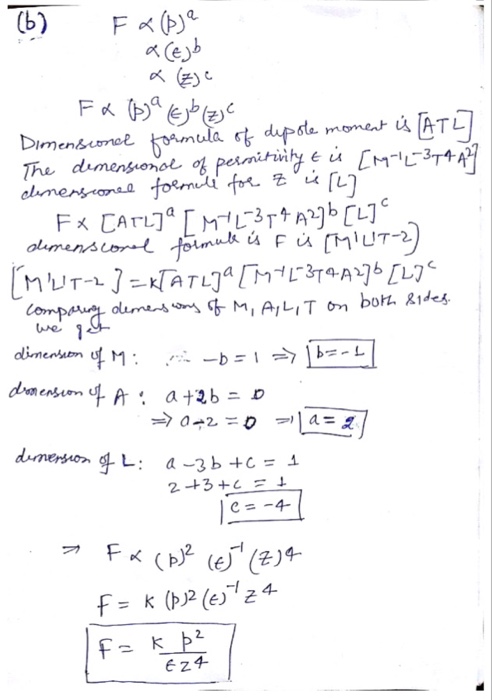 (b) F ∝ (p)^a
∝ (ε)^b
∝ (z)^c
F ∝ (p)^a (ε)^b (z)^c
Dimensional formula of dipole moment is [ATL]
The demensional of permitivity ε is [M^-1L^-3T^4A^2]
demensional formula for z is [L]
F ∝ [ATL]^a [M^-1L^-3T^4A^2]^b [L]^c
demensional formula is F is [M^1L^1T^-2)
[M^1L^1T^-2] = K[ATL]^a [M^-1L^-3T^4A^2]^b [L]^c
comparing demensions of M, A, L, T on both sides.
we get
dimension of M: ∴ -b = 1 ⇒ b = -1
dimension of A: a+2b = 0
⇒ a-2 = 0 ⇒ a = 2
demension of L: a-3b+c = 1
2+3+c = 1
c = -4
⇒ F ∝ (p)^2 (ε)^-1 (z)^4
F = K (p)^2 (ε)^-1 z^4
F = K p^2 / εz^4